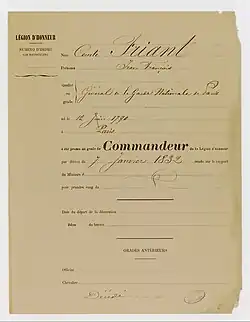 LÉGION D'HONNEUR
NUMÉRO D'ORDRE
DES MATRICULES
Nom Comte Friant
Prénoms Jean François
Qualité ou grade. Général de la Garde Nationale de Paris
né le 12 Juin 1790
à Paris
a été promu au grade de Commandeur de la Légion d'honneur
par décret du 7 janvier 1832 rendu sur le rapport
du Ministre d
pour prendre rang du
Date du départ de la
du brevet
GRADES ANTÉRIEURS
Officier
Chevalier
Décédé